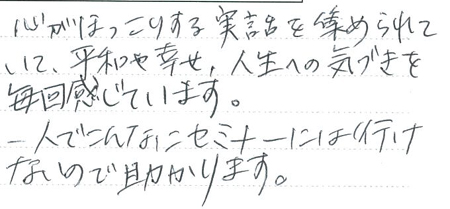 心がほっこりする実話を集められて
いて、平和や幸せ、人生への気づきを
毎回感じています。
一人でこんなにセミナーには行け
ないので助かります。